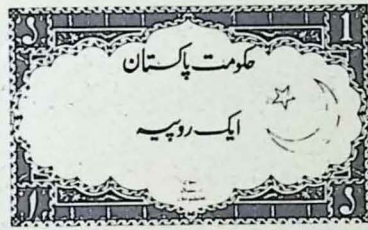 1
حکومت پاکستان
ایک روپیہ